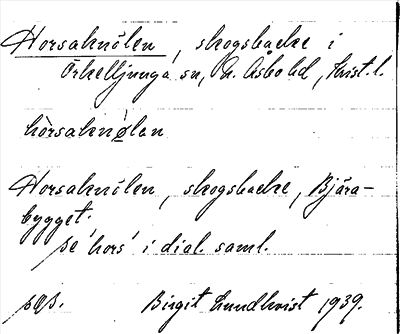 Horsaknölen, skogsbacke i
Örkelljunga sn, N. Åsbo hd, Krist. l.
hòrsaknø̀lan
Horsaknölen, skogsbacke, Bjära-
bygget.
se 'hors' i dial. saml.
Birgit Lundkvist 1939.